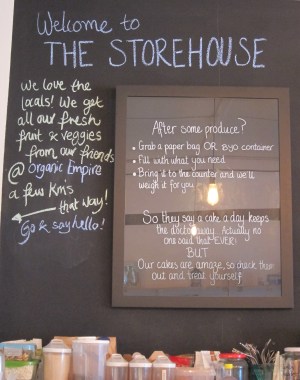 Welcome to
THE STOREHOUSE
We love the
locals! We get
all our fresh
fruit & veggies
from our friends
@ Organic Empire
a few kms
that way!
Go & say hello!
After some produce?
• Grab a paper bag OR BYO container
• Fill with what you need
• Bring it to the counter and we'll
weigh it for you
So they say a cake a day keeps
the doctor away. Actually no
one said that EVER!
BUT
Our cakes are amaze, so check them
out and treat yourself